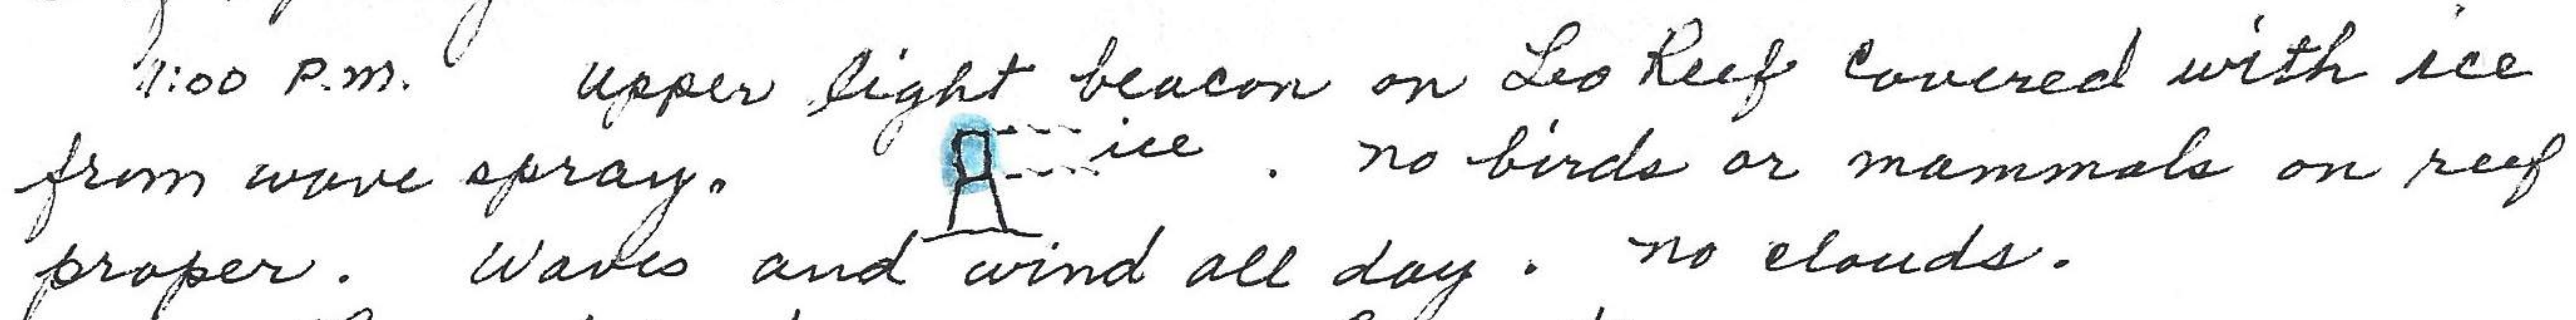 1:00 P.m. Upper light beacon on Leo Reef covered with ice
from wave spray. ice. no birds or mammals on reef
proper. Waves and wind all day. no clouds.